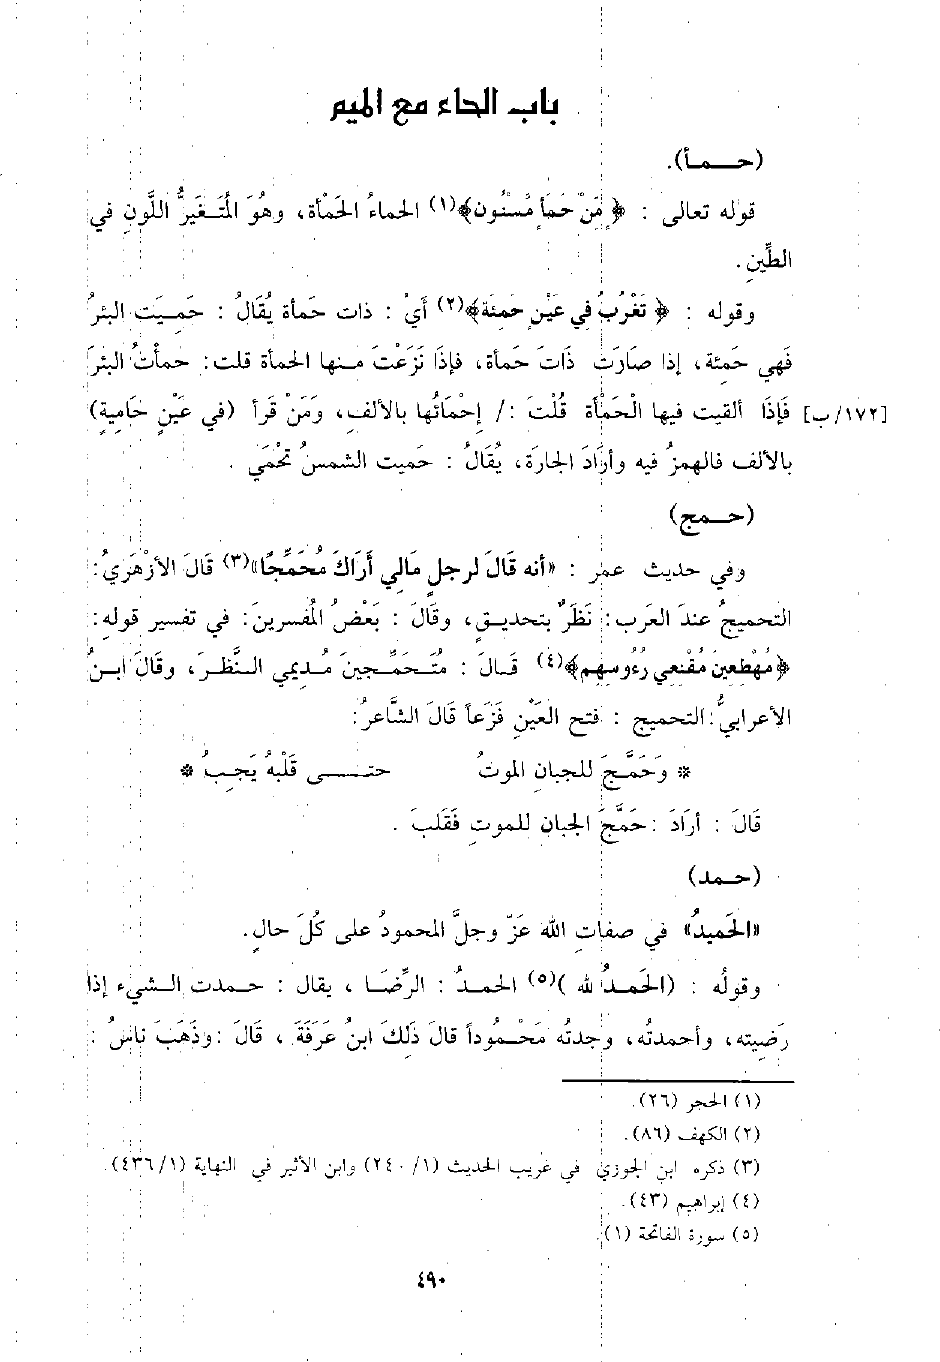 باب الحاء مع الميم
(حـــمأ).
قوله تعالى : ﴿ مِّنْ حَمَأٍ مَّسْنُون﴾(١) الحماءُ الحَمْأة، وهوَ المُتَـغَيرُّ اللَّونِ في
الطِّينِ .
وقوله : ﴿ تَغْرُبُ في عَيْنٍ حَمِئَة﴾(٢) أيْ : ذات حَمأة يُقَالُ : حَمـيَت البئرُ
فَهي حَمِئة، إذا صَارَت ذَاتَ حَمأة، فإذَا نَزَعْتَ مـنها الحمأة قلت: حمأتُ البئرَ
[١٧٢/ب] فَإذَا ألقيت فيها الْحَمْأة قُلْتَ :/ إحْمَائها بالألفِ، ومَنْ قَرأ (في عَيْنٍ حَامِية)
بالألف فالهمزُ فيه وأرَادَ الجارَة، يُقَالُ : حَميت الشمسُ تحْمَي .
(حـمج)
وفي حديث عمر : «أنه قَالَ لرجلٍ مَالي أَرَاكَ مُحَمِّجًا»(٣) قَالَ الأزْهَرَيُ:
التحميجُ عندَ العَرَب: نَظَرٌ بتحديـقٍ، وقَالَ : بَعْضُ المُفسرينَ: في تفسير قوله:
﴿مُهْطِعينَ مُقْنِعي رُءُوسِهِم﴾(٤) قَـالَ : مُتَـحَمِّـجينَ مُـديمي الـنَّظـرَ، وقَالَ ابـنُ
الأعرابيُّ: التحميج : فتح العَيْنِ فَزَعاً قَالَ الشَّاعرُ:
* وَحَمَّـجَ للجبانِ الموتُ حتـــى قَلْبهُ يَجـبُ *
قَالَ : أرَادَ :حَمَّجَ الجبان للموتِ فَقَلبَ .
(حـمد)
«الحَميدُ» في صفات الله عَزّ وجلَّ المحمودُ على كُلِّ حالِ.
وقولُه : (الحَمـدُ لله )(٥) الحمـدُ : الرِّضَـا ، يقال : حـمدت الـشيء إذا
رَضيته، وأحمدتُه، وجدتُه مَحْـموداً قالَ ذَلكَ ابنُ عَرَفَةَ ، قَالَ :وذَهَبَ ناسُ :
(١) الحجر (٢٦).
(٢) الكهف (٨٦).
(٣) ذكره ابن الجوزي في غريب الحديث (١/ ٢٤٠) وابن الأثير في النهاية (١/ ٤٣٦).
(٤) إبراهيم (٤٣).
(٥) سورة الفاتحة (١).
٤٩٠